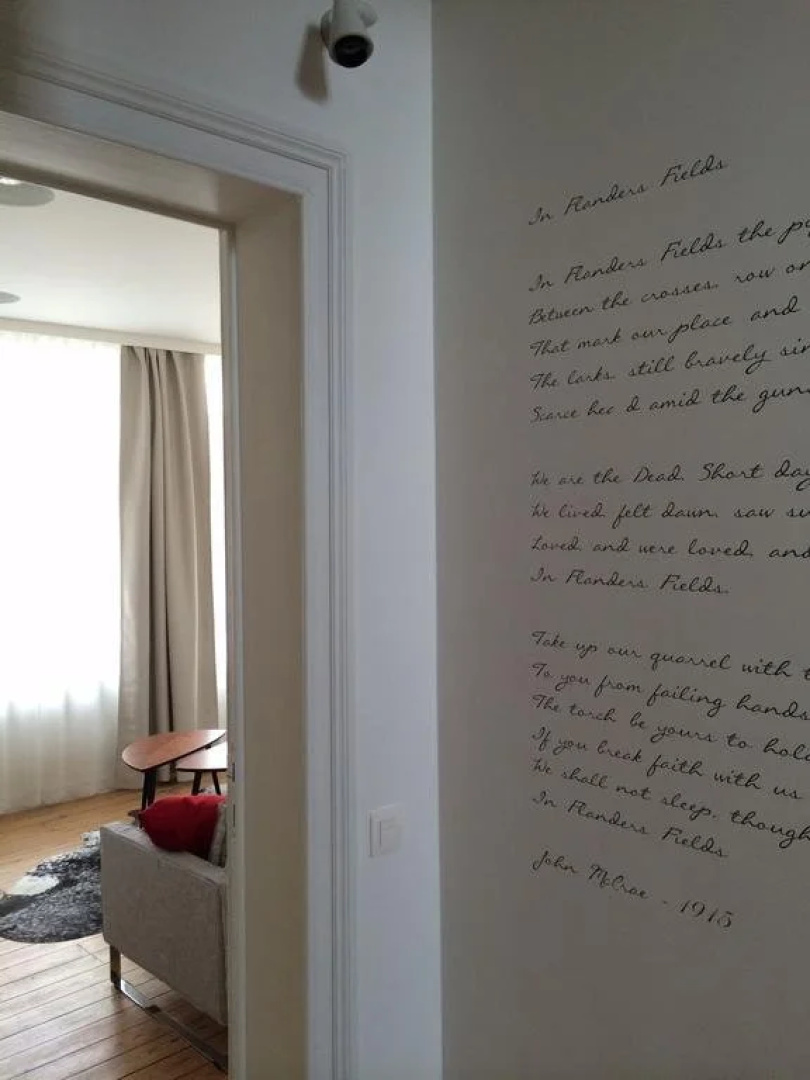 In Flanders Fields
In Flanders Fields the
Between the crosses, row
That mark our place and
The larks, still bravely
Scarce hea d amid the
We are the Dead. Short
We lived, felt dawn, saw
Loved, and were loved, and
In Flanders Fields.
Take up our quarrel with
To you from failing hands
The torch be yours to
If you break faith with us
We shall not sleep, though
In Flanders Fields
John McCrae - 1915